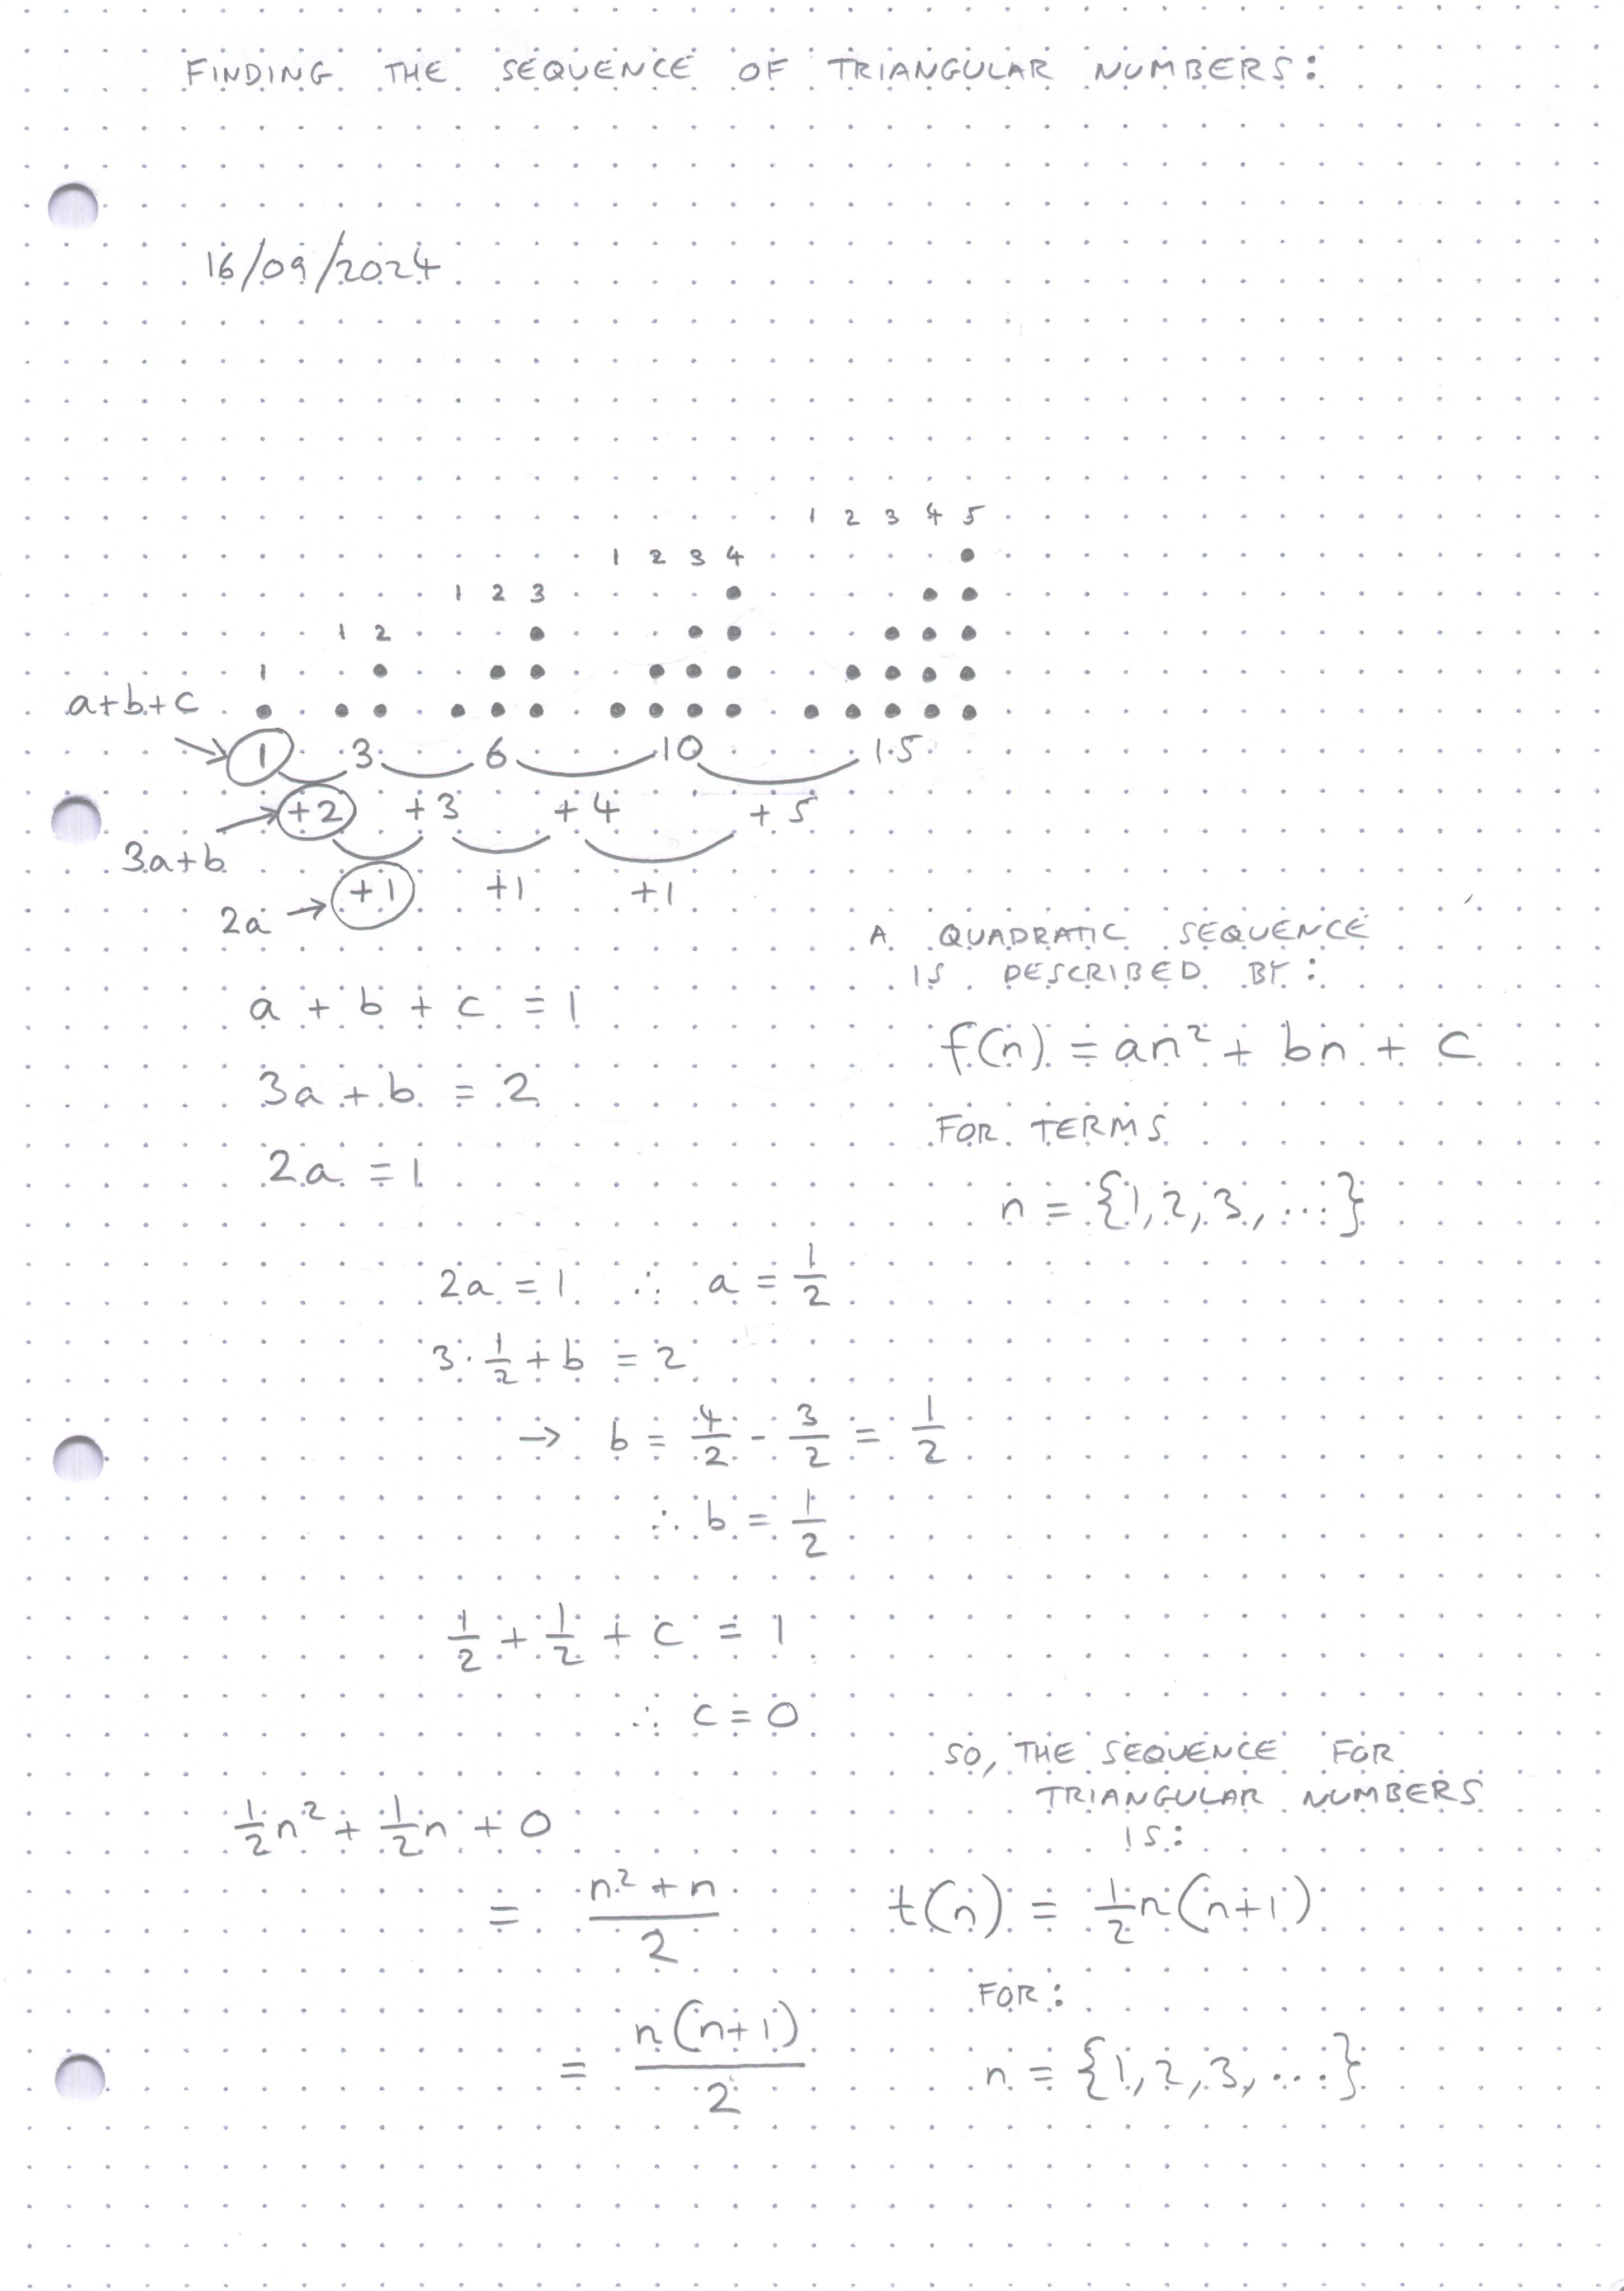 FINDING THE SEQUENCE OF TRIANGULAR NUMBERS:
16/09/2024
1 2 3 4 5
1 2 3 4
1 2 3
1 2
1
a+b+c
1 3 6 10 15
+2 +3 +4 +5
3a+b
+1 +1 +1
2a
A QUADRATIC SEQUENCE
IS DESCRIBED BY:
f(n) = an² + bn + c
FOR TERMS
n = {1, 2, 3, ...}
a + b + c = 1
3a + b = 2
2a = 1
2a = 1 ∴ a = 1/2
3 · 1/2 + b = 2
→ b = 4/2 - 3/2 = 1/2
∴ b = 1/2
1/2 + 1/2 + c = 1
∴ c = 0
1/2 n² + 1/2 n + 0
= n² + n / 2
= n(n+1) / 2
SO, THE SEQUENCE FOR
TRIANGULAR NUMBERS
IS:
t(n) = 1/2 n(n+1)
FOR:
n = {1, 2, 3, ...}